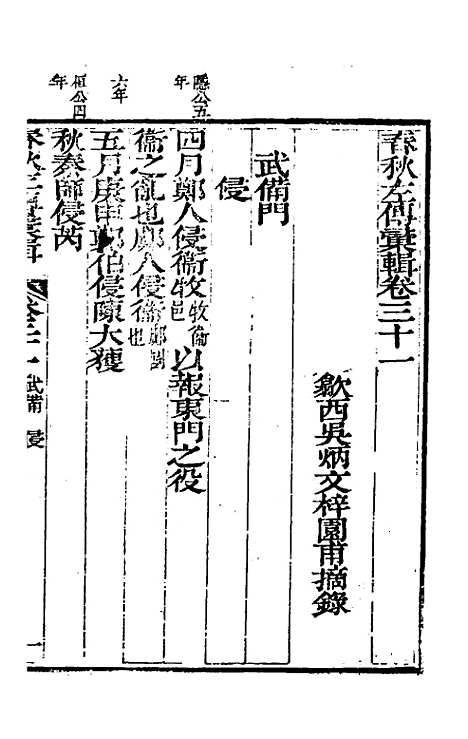 春秋左傳彙輯卷三十一
歙西吳炳文梓園甫摘錄
武備門
侵
隱公五年
四月鄭人侵衞牧牧衞邑以報東門之役
衞之亂也郕人侵衞郕國也
六年
五月庚申鄭伯侵陳大獲
桓公四年
秋秦師侵芮
春秋左傳彙輯
卷三十一 武備 侵
一